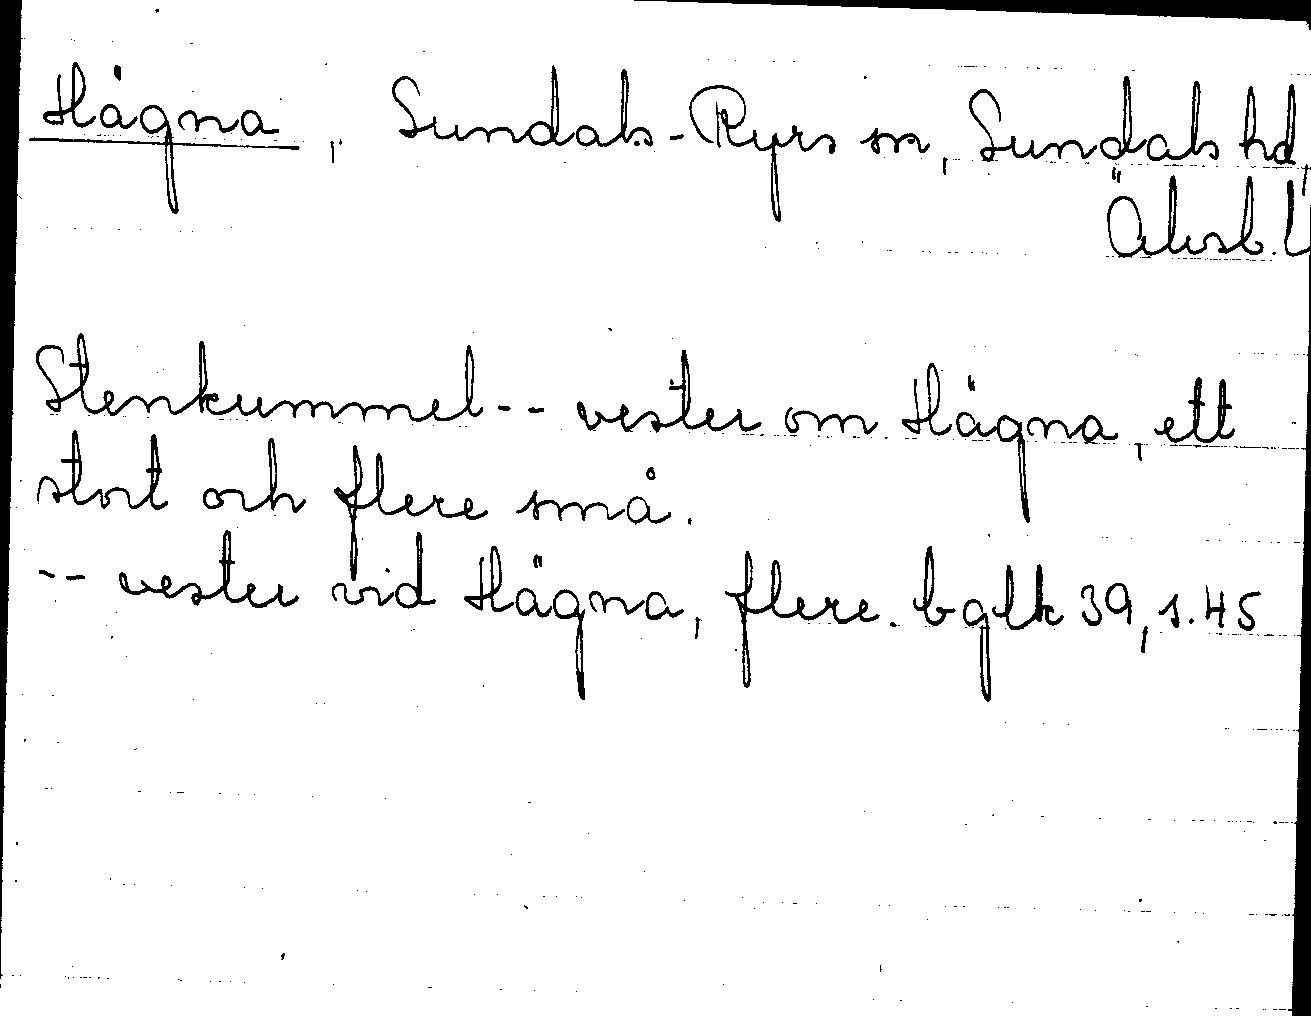 Hägna, Sundals-Ryrs sn, Sundals hd,
Älvsb. l
Stenkummel -- vester om Hägna, ett
stort och flere små.
-- vester vid Hägna, flere. bglk 39, s. 45